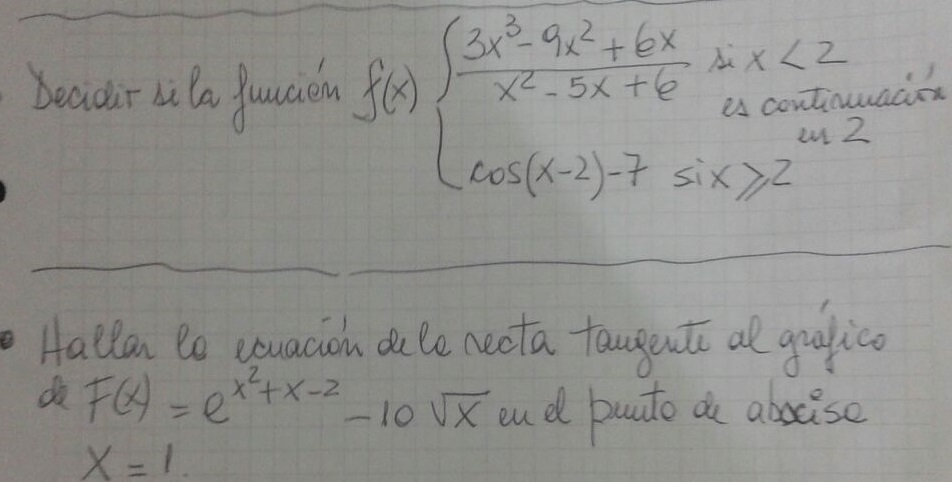 Decidir si la función f(x) { (3x³ - 9x² + 6x) / (x² - 5x + 6) si x < 2
es continuación
en 2
cos(x-2)-7 si x ≥ 2
• Hallar la ecuación de la recta tangente al gráfico
de F(x) = e^(x²+x-2) - 10 √x en el punto de abscisa
x = 1.